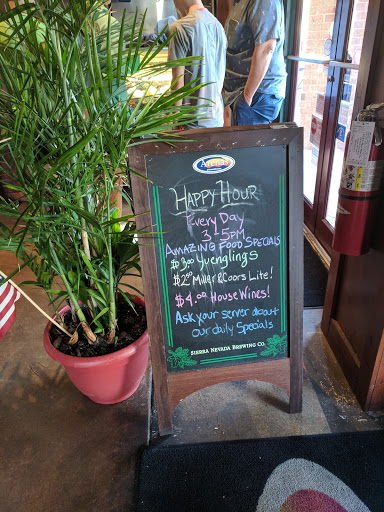 Arena's
Happy Hour
Every Day
3 - 5pm
Amazing Food Specials
$3.00 Yuenglings
$2.50 Miller & Coors Lite!
$4.00 House Wines!
Ask your server about
our daily Specials
SIERRA NEVADA BREWING CO.